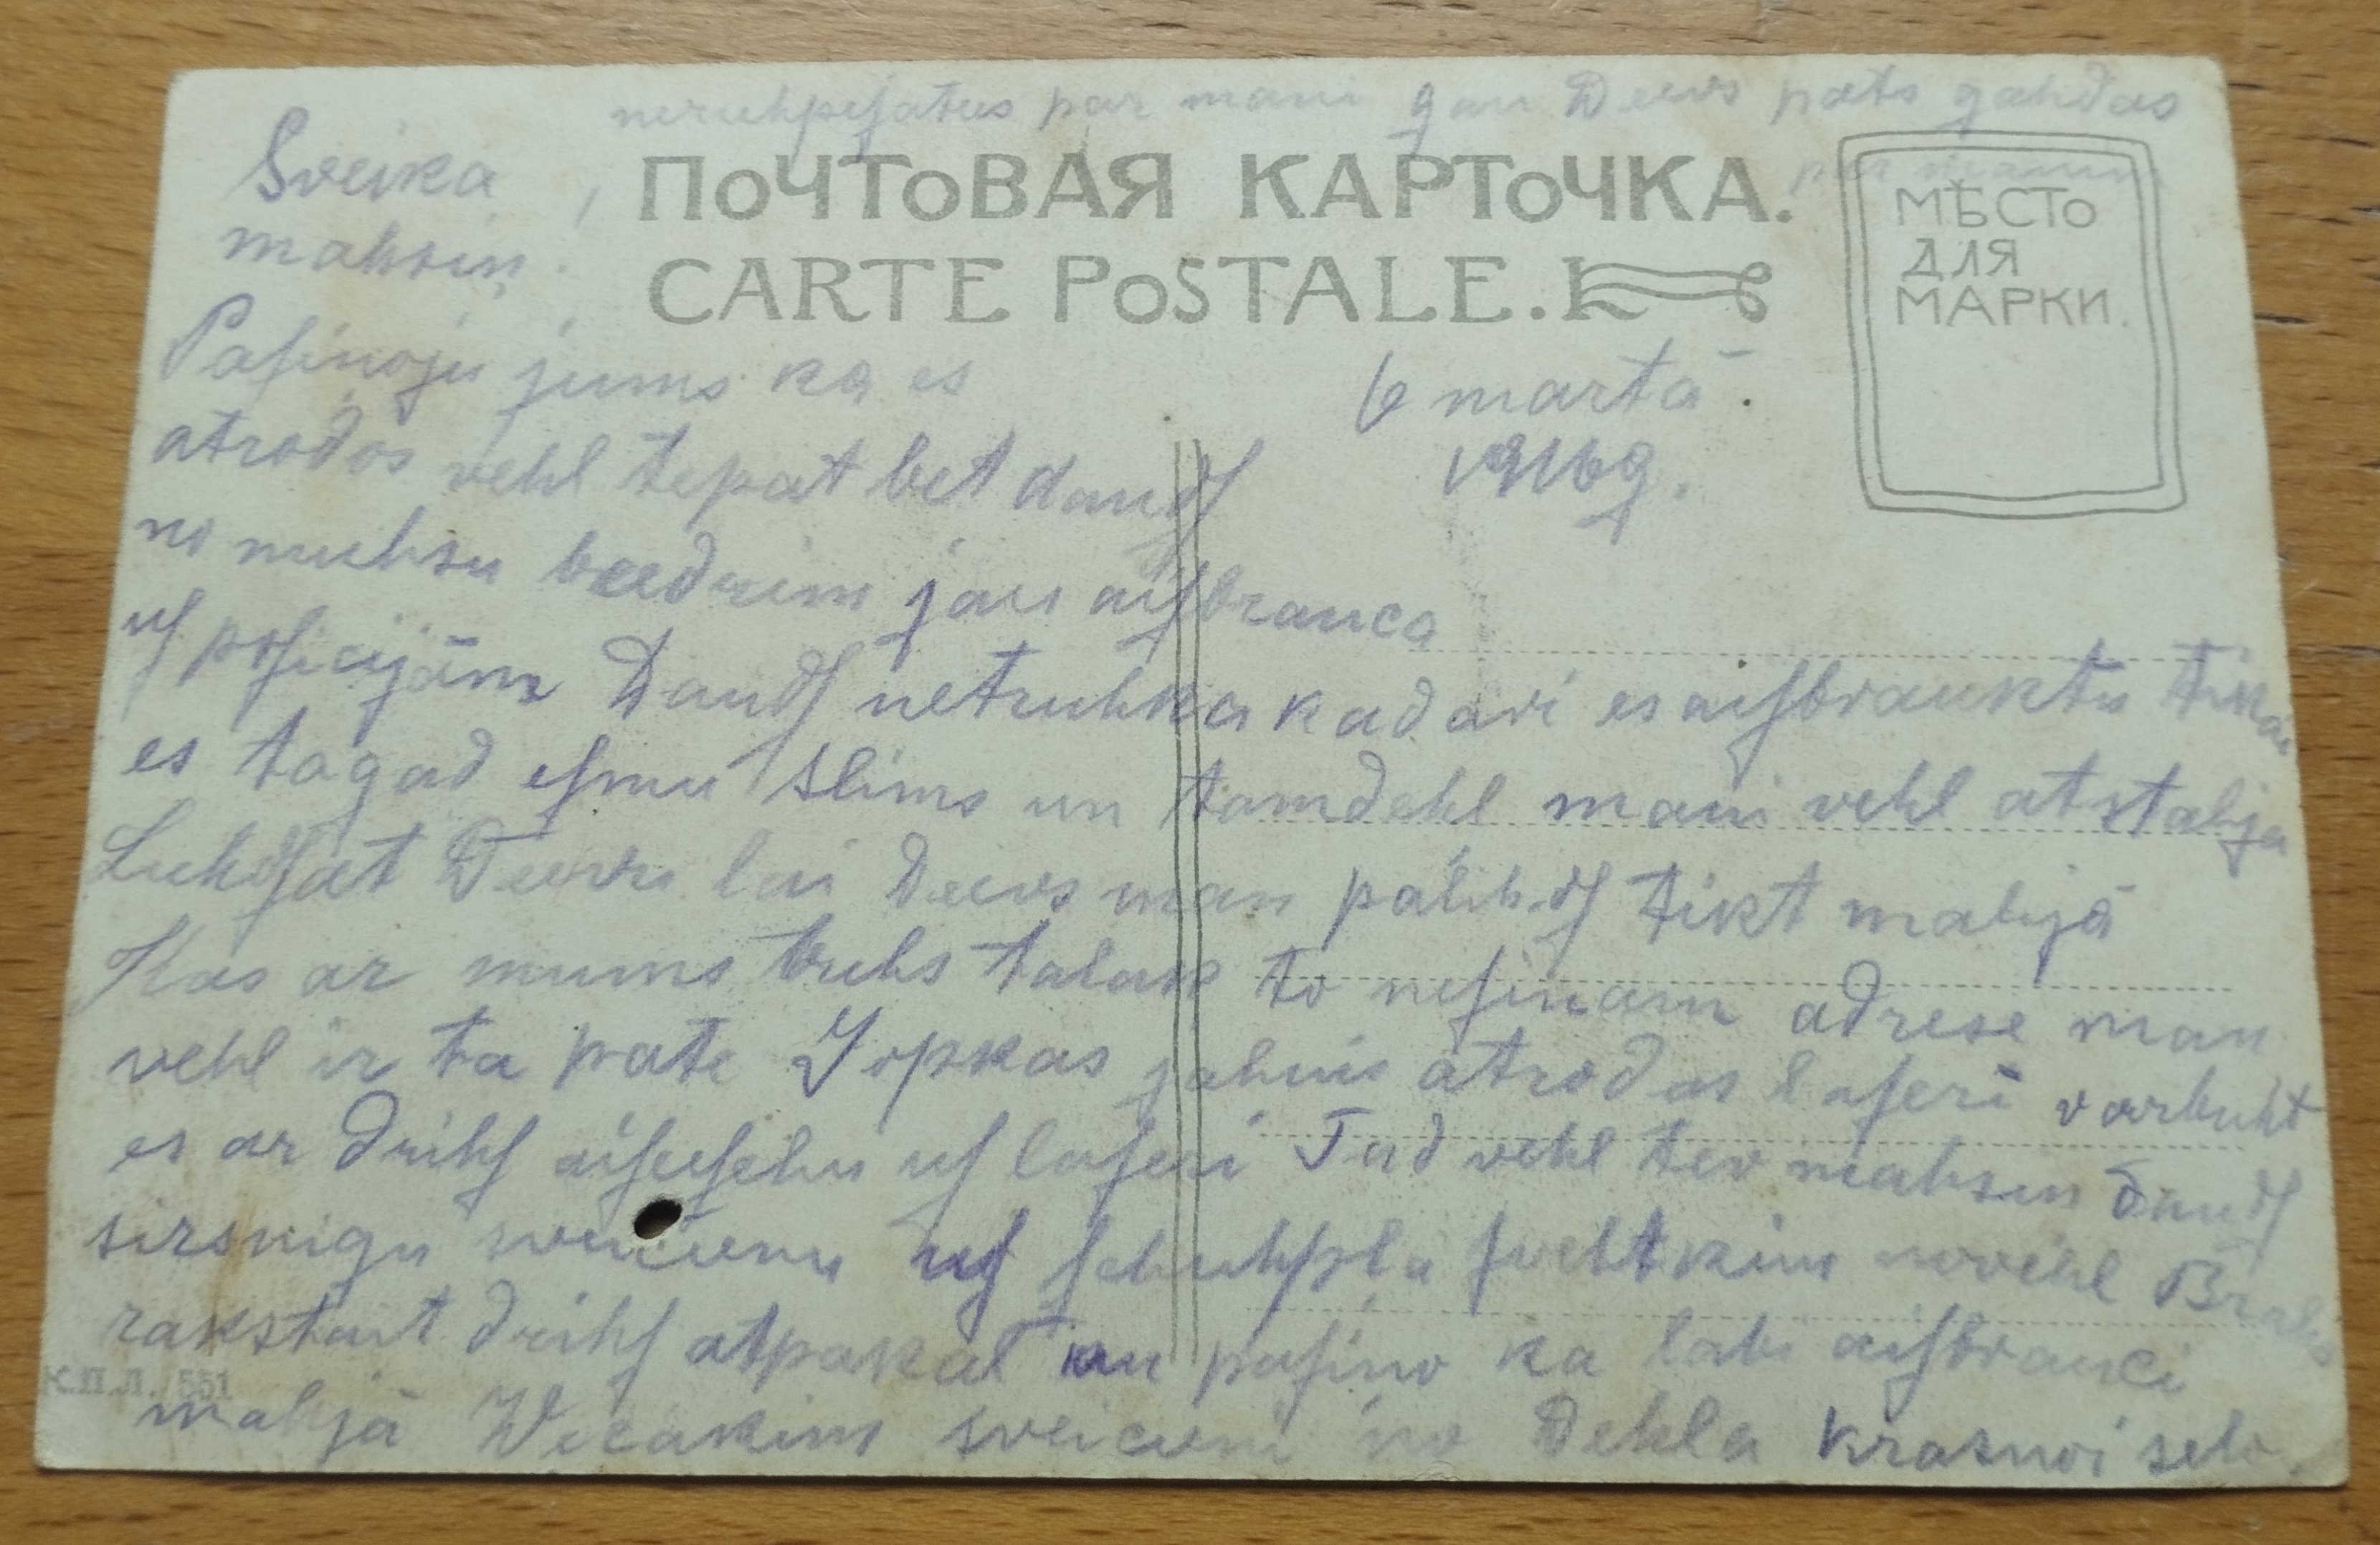 neruhpejatees par mani gan Deews pats gahdas
par manim
Sveika,
mahsin.
ПОЧТОВАЯ КАРТОЧКА.
CARTE POSTALE.
МѢСТО
ДЛЯ
МАРКИ.
Pasinoju jums ka es
6 martā.
1916 g.
atrodos vehl tepat bet daudſ
no muhsu beedrim jau aiſbrauca
uſ poſicijām Daudſ netruhka kad ari es aiſbrauktu tikai
es tagad eſmu slims un tamdehl mani vehl atstahja
Luhdſat Deewu lai Deews man palihdſ tikt mahjā
Kas ar mums buhs talak to neſinam adrese man
vehl ir ta pate Jopkas jahnis atrodas laſeri varbuht
es ar drihſ aiſeeſchu uſ laſeri Tad vehl tev mahsin daudſ
sirsnigu sveicienu uſ swehtkim novehl Brahlis
rakstait drihſ atpakaļ un paſino ka labi aiſbrauci
К.П.Л. 551
mahjā Wecakim sveicieni no Dehla Krasnoi selo.